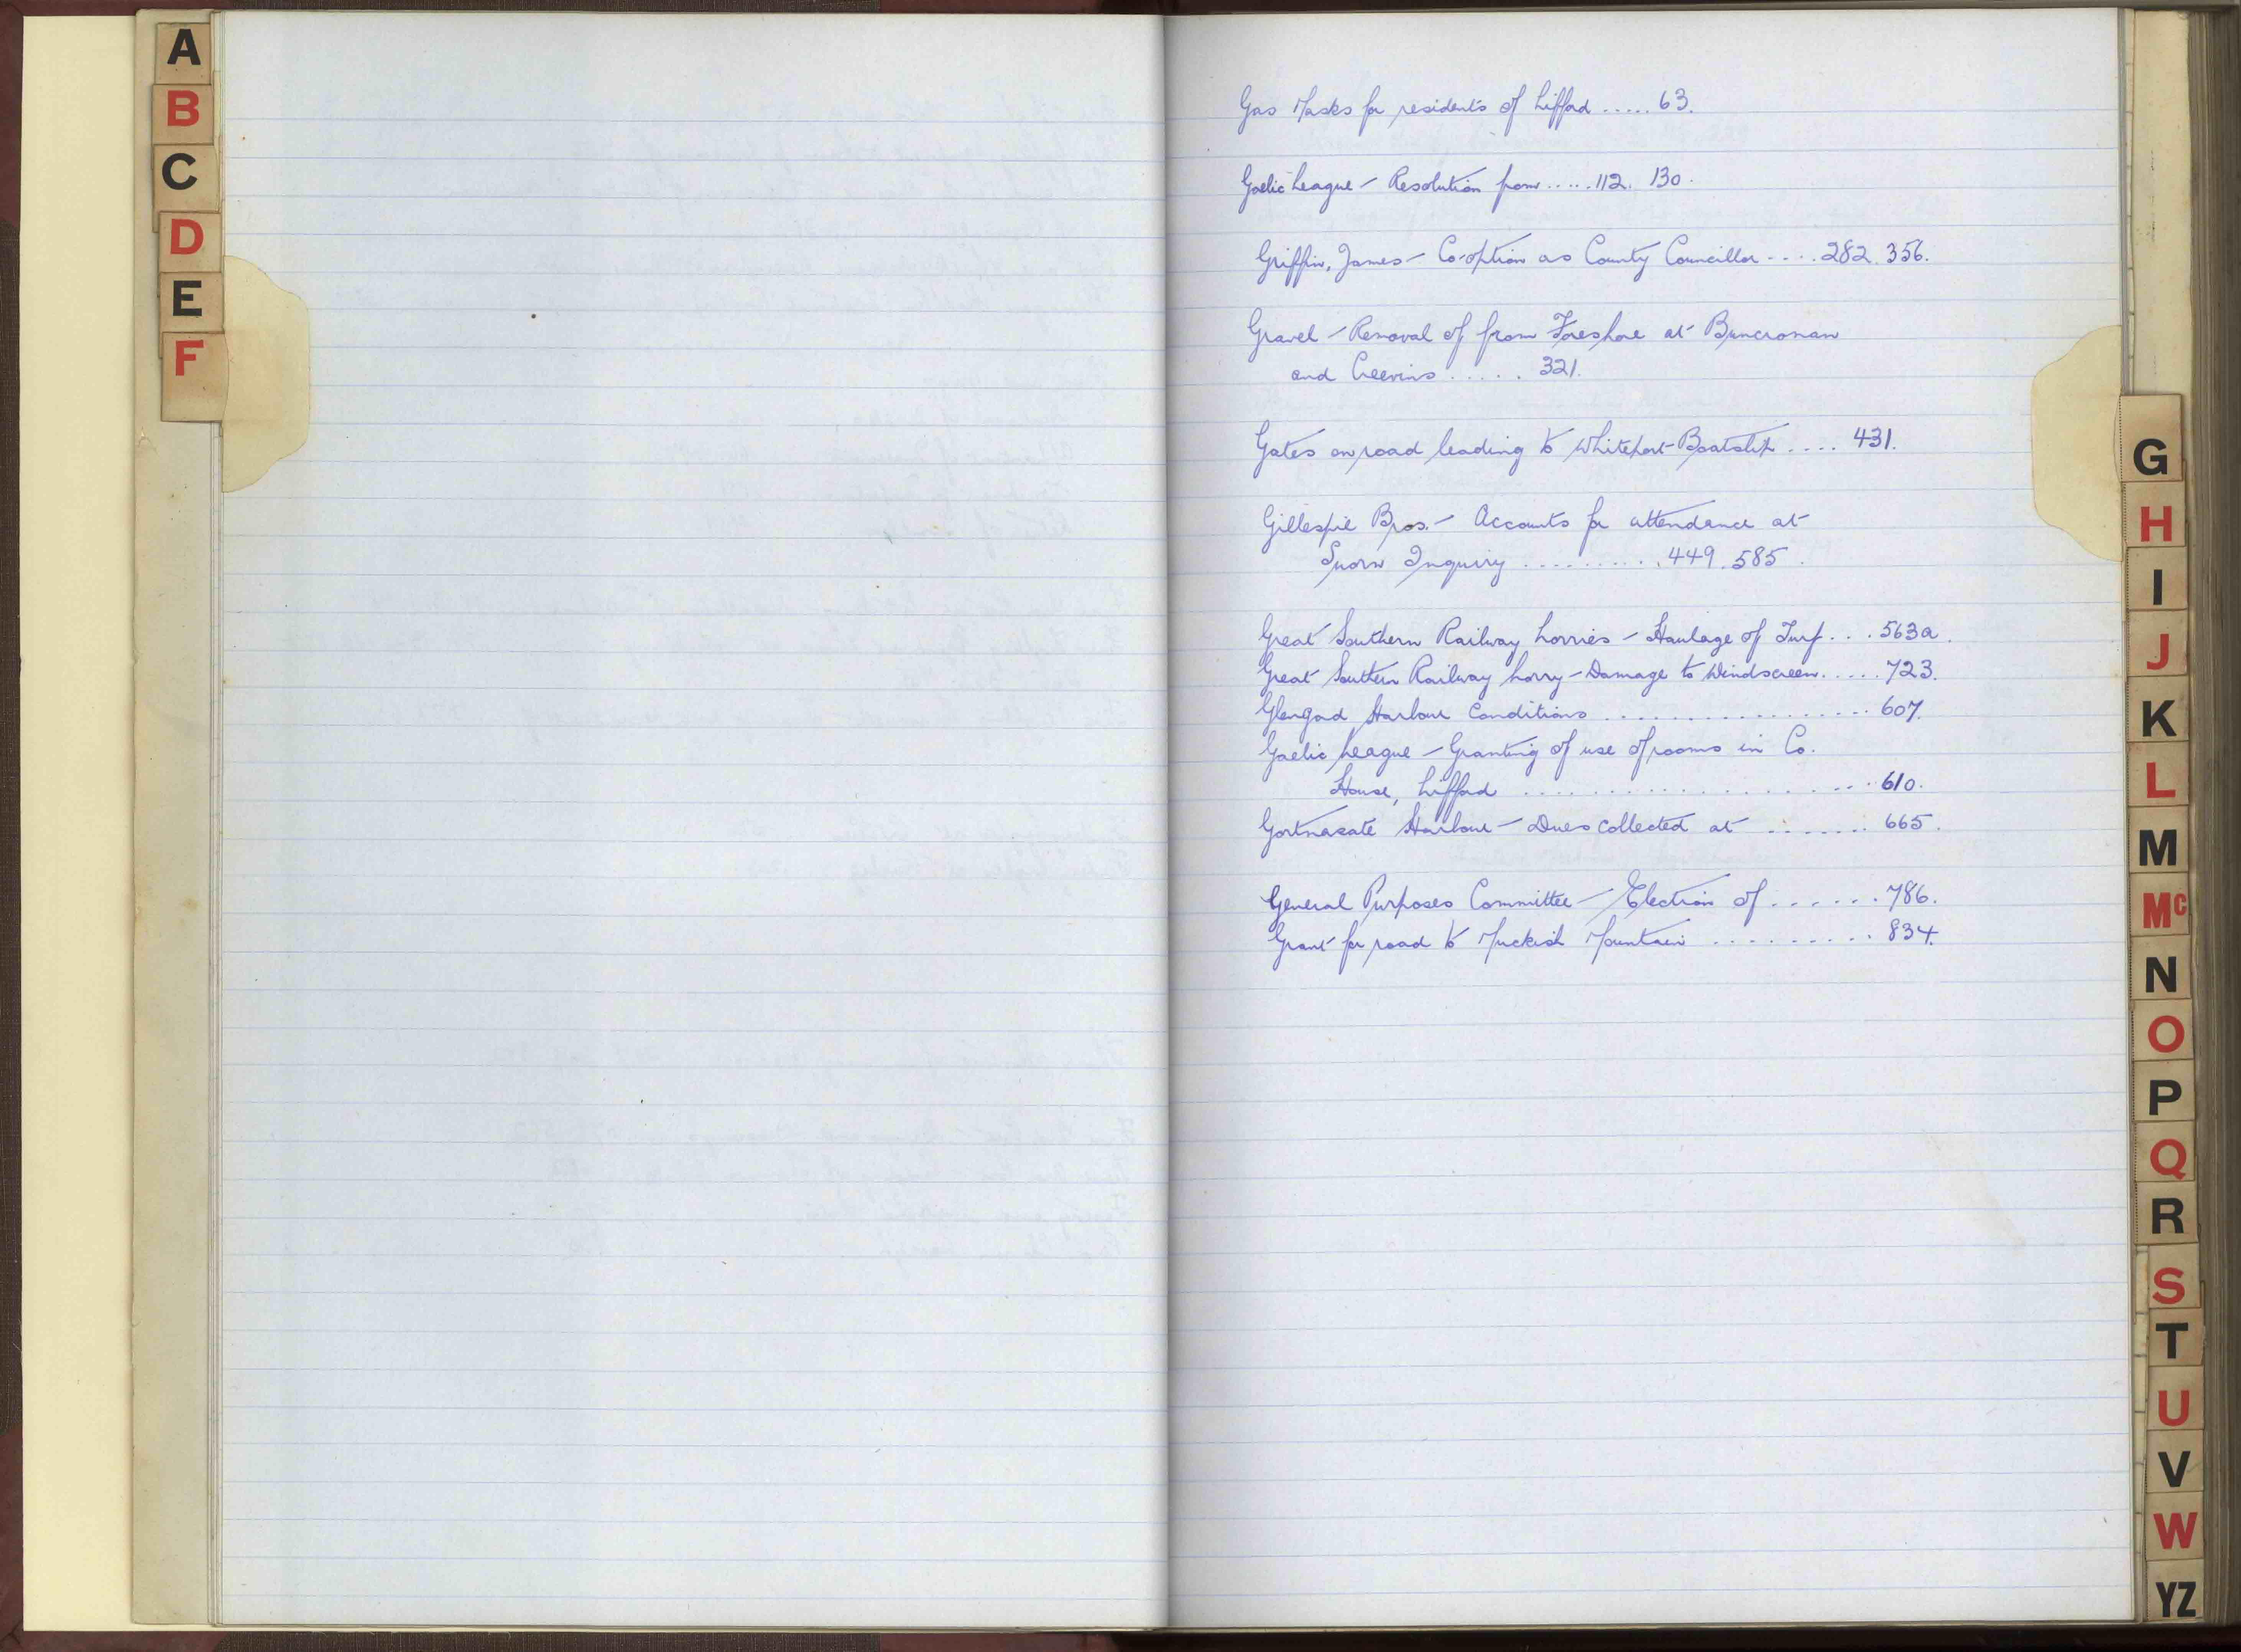 A
B
C
D
E
F
Gas Masks for residents of Lifford ..... 63.
Gaelic League - Resolution from ..... 112. 130.
Griffin, James - Co-option as County Councillor .... 282. 356.
Gravel - Removal of from Foreshore at Buncronan
and Creevins ..... 321.
Gates on road leading to Whiteport Boatslip .... 431.
Gillespie Bros. - Accounts for attendance at
Sworn Inquiry .......... 449. 585.
Great Southern Railway Lorries - Haulage of Turf ... 563a.
Great Southern Railway Lorry - Damage to Windscreen ..... 723.
Glengad Harbour Conditions .................. 607.
Gaelic League - Granting of use of rooms in Co.
House, Lifford ...................... 610.
Gortnasate Harbour - Dues collected at ....... 665.
General Purposes Committee - Election of ...... 786.
Grant for road to Muckish Mountain .......... 834.
G
H
I
J
K
L
M
Mc
N
O
P
Q
R
S
T
U
V
W
YZ